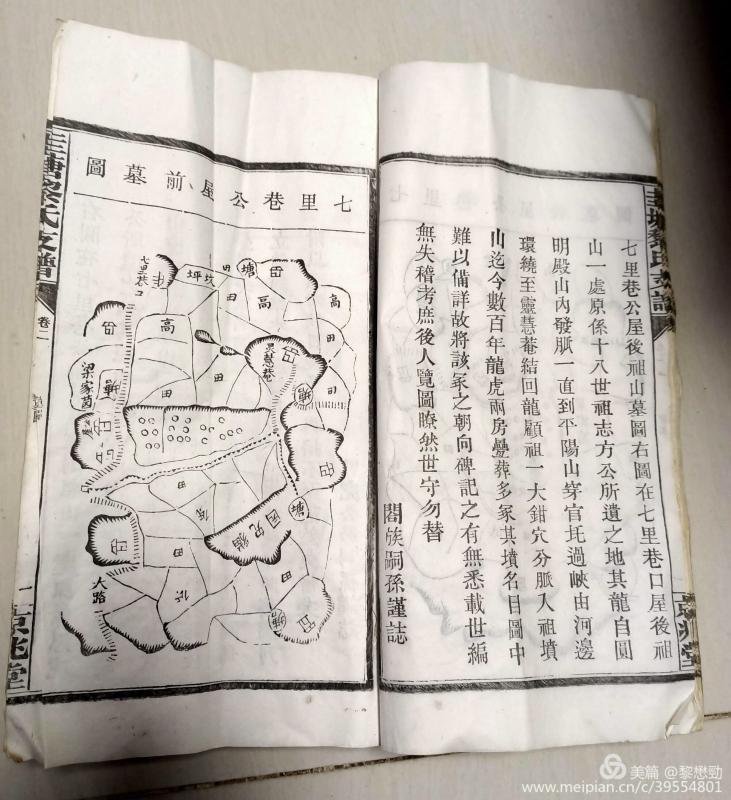 七里巷公屋後祖山墓圖右圖在七里巷口屋後祖
山一處原係十八世祖志方公所遺之地其龍自圓
明殿山內發脈一直到平陽山穿官坵過峽由河邊
環繞至靈慧菴結回龍顧祖一大鉗穴分脈入祖墳
山迄今數百年龍虎兩房疊葬多冢其墳名目圖中
難以備詳故將該冢之朝向碑記之有無悉載世編
無失稽考庶後人覽圖瞭然世守勿替
閤族嗣孫謹誌
七里巷公屋前墓圖
七里巷口
坎坪
田
塘
田
高
田
高
田
高
田
田
田
梁家
靈慧菴
田
塘
田
田
田
田
大路
卷二
京兆堂
黎氏支譜
美篇 @黎懋勁
www.meipian.cn/c/39554801